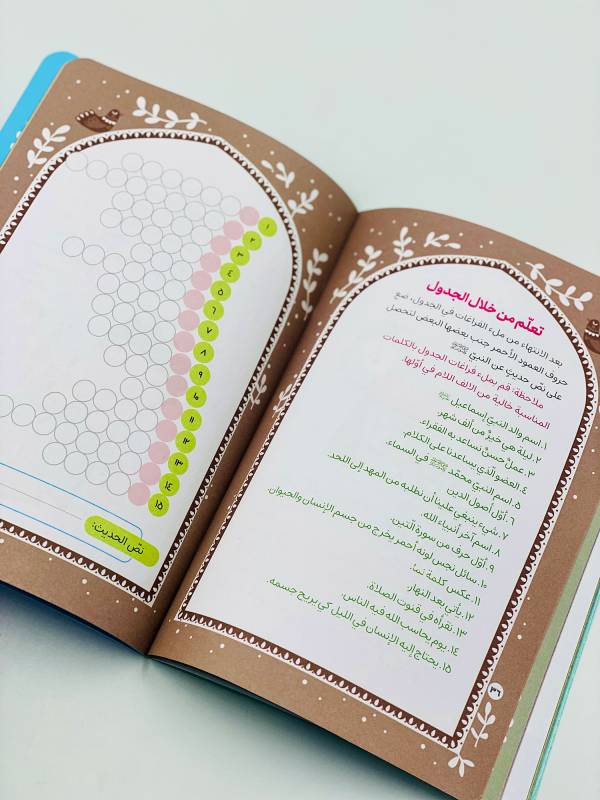 تعلّم من خلال الجدول
بعد الانتهاء من ملء الفراغات في الجدول، ضع
حروف العمود الأحمر جنب بعضها البعض لتحصل
على نصّ حديثٍ عن النبيّ ﷺ
ملاحظة: قم بملء فراغات الجدول بالكلمات
المناسبة خالية من الالف اللام في أوّلها.
١. اسم والد النبيّ إسماعيل
٢. ليلة هي خيرٌ من ألف شهر.
٣. عملٌ حسنٌ نساعد به الفقراء.
٤. العضو الّذي يساعدنا على الكلام.
٥. اسم النبيّ محمّد ﷺ في السماء.
٦. أوّل أصول الدين
٧. شيء ينبغي علينا أن نطلبه من المهد إلى اللحد.
٨. اسم آخر أنبياء الله.
٩. أوّل حرف من سورة التين.
١٠. سائل نجس لونه أحمر يخرج من جسم الإنسان والحيوان.
١١. عكس كلمة نما.
١٢. يأتي بعد النهار.
١٣. نقرأه في قنوت الصلاة.
١٤. يوم يحاسب الله فيه الناس.
١٥. يحتاج إليه الإنسان في الليل كي يريح جسمه.
٣٦
١
٢
٣
٤
٥
٦
٧
٨
٩
١٠
١١
١٢
١٣
١٤
١٥
نصّ الحديث: